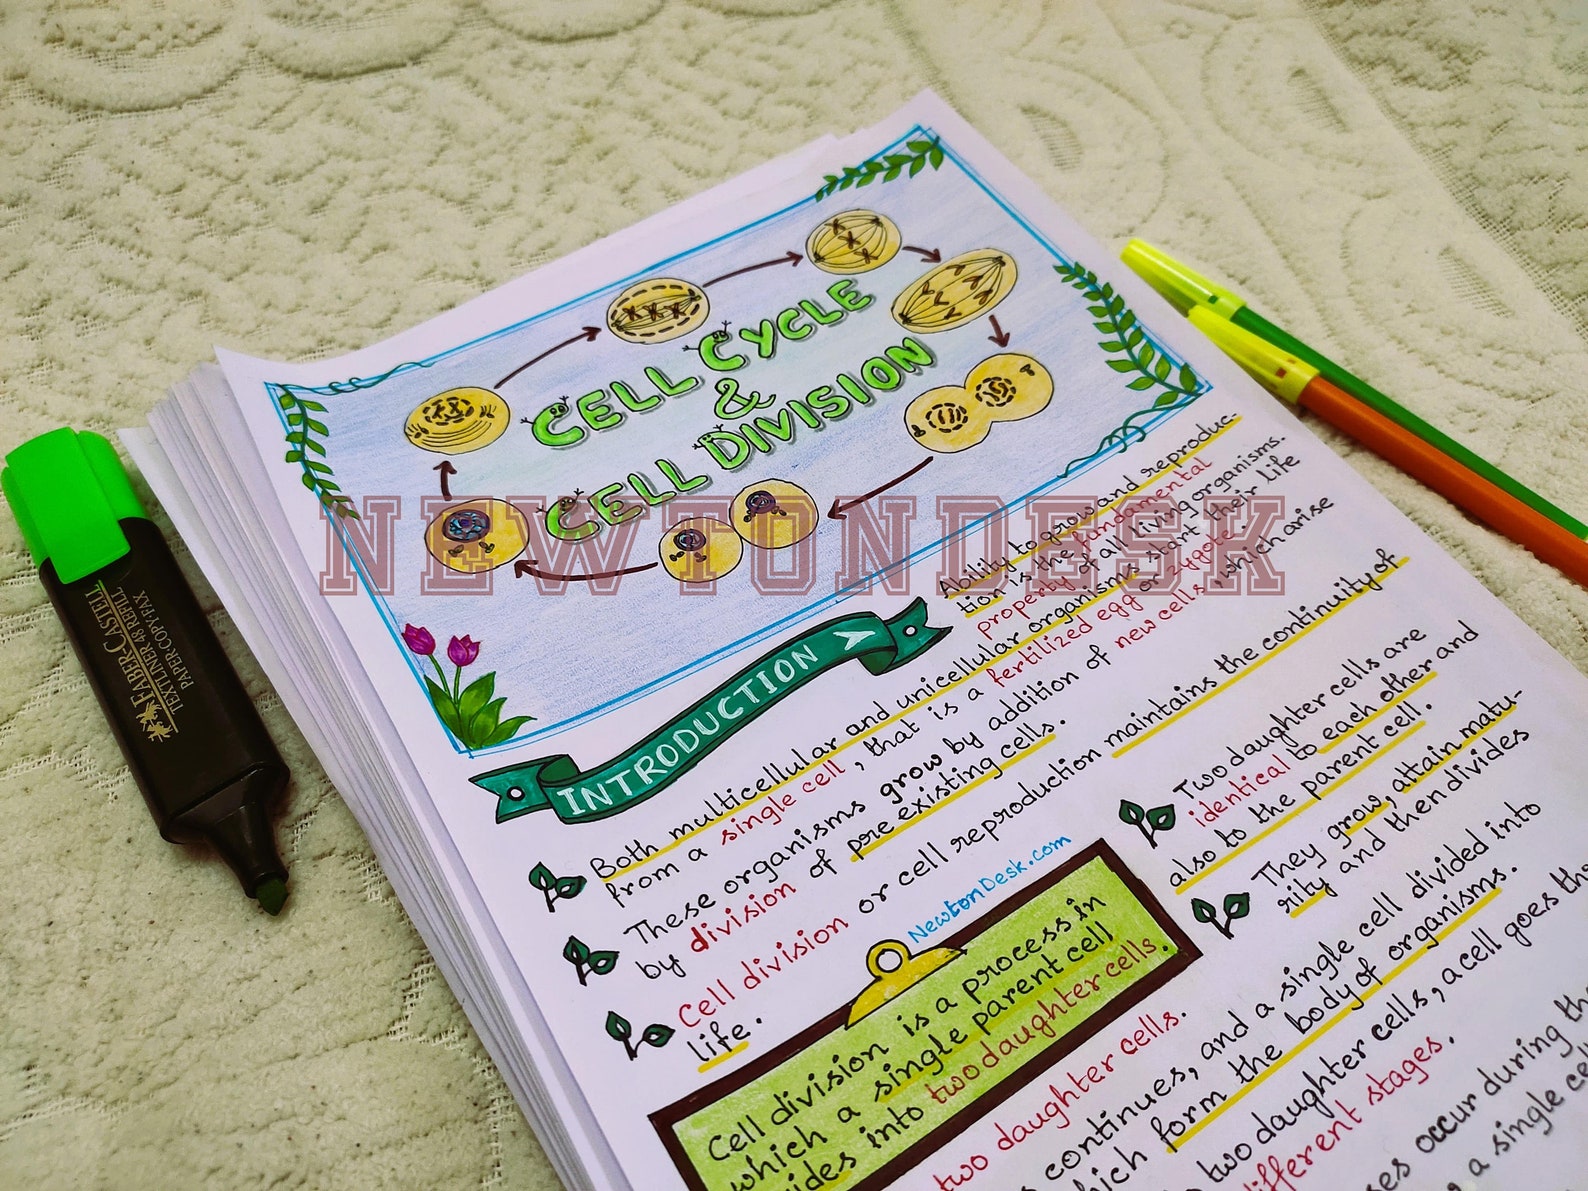 CELL CYCLE
&
CELL DIVISION
NEWTONDESK
INTRODUCTION
Ability to grow and reproduc-
tion is the fundamental
property of all living organisms.
Both multicellular and unicellular organisms start their life
from a single cell, that is a fertilized egg or zygote.
These organisms grow by addition of new cells, which arise
by division of pre existing cells.
Cell division or cell reproduction maintains the continuity of
life.
NewtonDesk.com
Cell division is a process in
which a single parent cell
ides into two daughter cells.
Two daughter cells are
identical to each other and
also to the parent cell.
They grow, attain matu-
rity and then divides
two daughter cells.
continues, and a single cell divided into
which form the body of organisms.
two daughter cells, a cell goes
different stages.
occur during the
a single
FABER-CASTELL
TEXTLINER 48 REFILL
PAPER-COPY-FAX